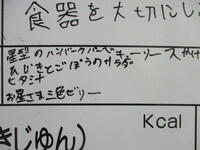 食器を大切にし
星型のハンバーグバーベキューソースかけ
ひじきとごぼうのサラダ
ヒタミナ
お星さま三色ゼリー
Kcal
きじゅん)